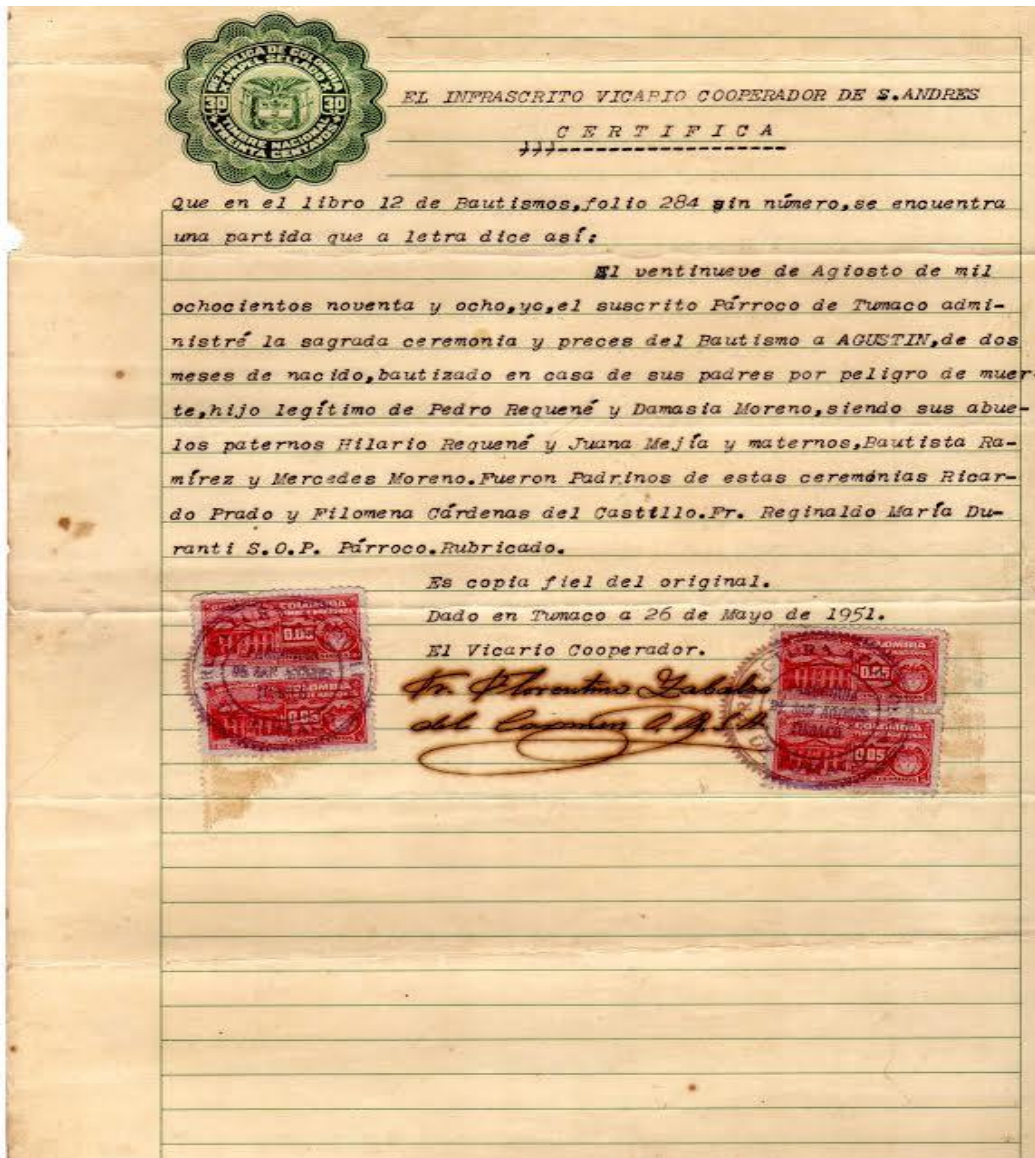 REPUBLICA DE COLOMBIA
X PAPEL SELLADO X
30 30
TIMBRE NACIONAL
TREINTA CENTAVOS
EL INFRASCRITO VICARIO COOPERADOR DE S.ANDRES
C E R T I F I C A
Que en el libro 12 de Bautismos,folio 284 sin número,se encuentra
una partida que a letra dice así:
El ventinueve de Agiosto de mil
ochocientos noventa y ocho,yo,el suscrito Párroco de Tumaco admi-
nistré la sagrada ceremonia y preces del Bautismo a AGUSTIN,de dos
meses de nacido,bautizado en casa de sus padres por peligro de muer-
te,hijo legítimo de Pedro Requené y Damasia Moreno,siendo sus abue-
los paternos Hilario Requené y Juana Mejía y maternos,Bautista Ra-
mírez y Mercedes Moreno.Fueron Padrinos de estas ceremónias Ricar-
do Prado y Filomena Cárdenas del Castillo.Fr. Reginaldo María Du-
ranti S.O.P. Párroco.Rubricado.
Es copia fiel del original.
Dado en Tumaco a 26 de Mayo de 1951.
El Vicario Cooperador.
Fr. Florentino Zabalza
del Carmen
COLOMBIA
0.05
COLOMBIA
0.05
COLOMBIA
0.05
TUMACO
COLOMBIA
0.05